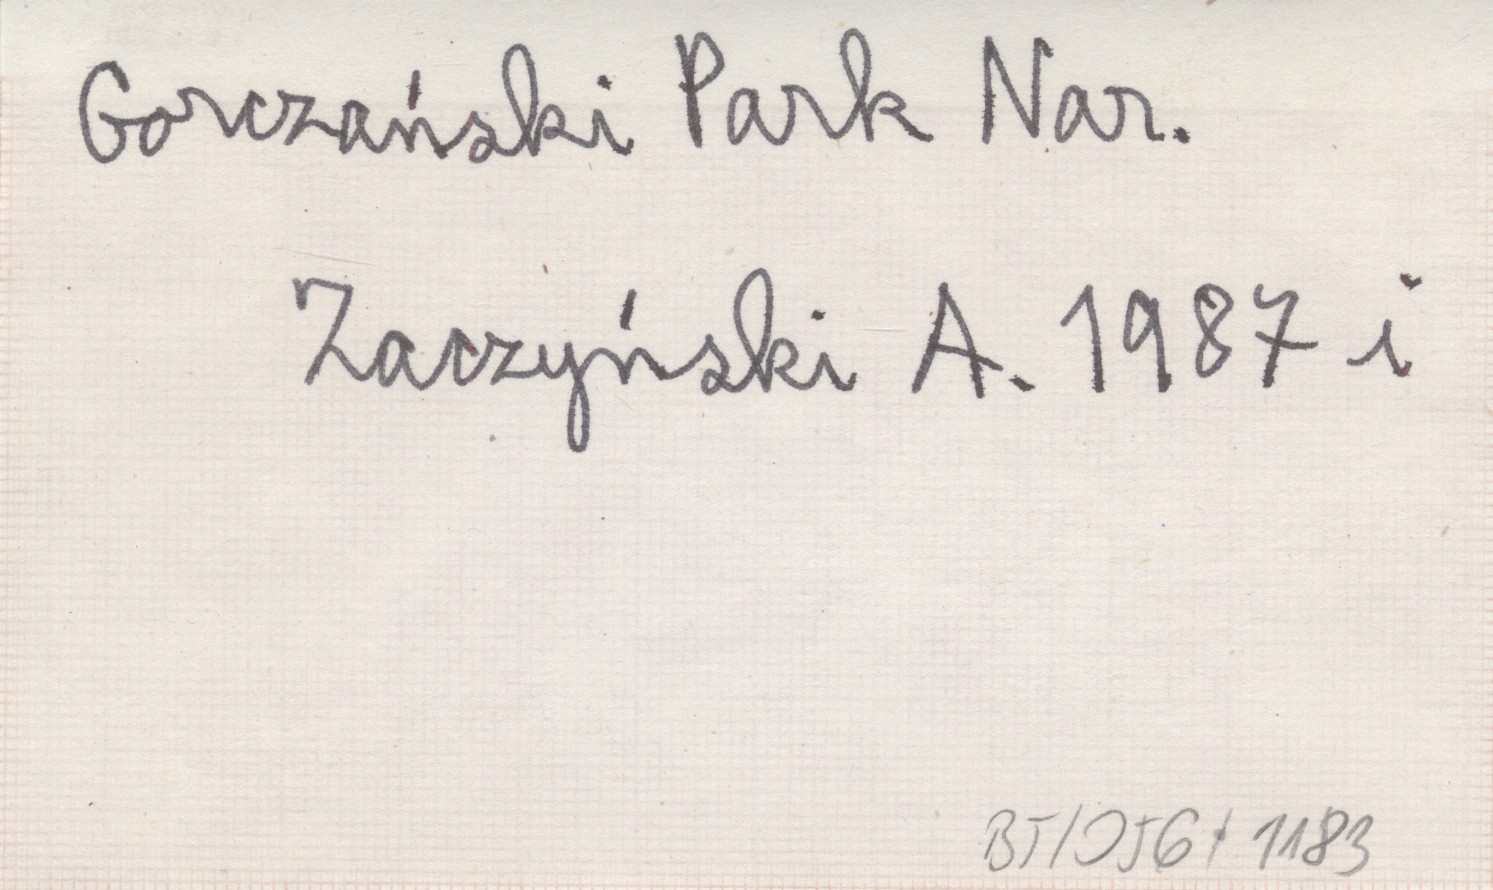 Gorczański Park Nar.
Zaczyński A. 1987 i
1183